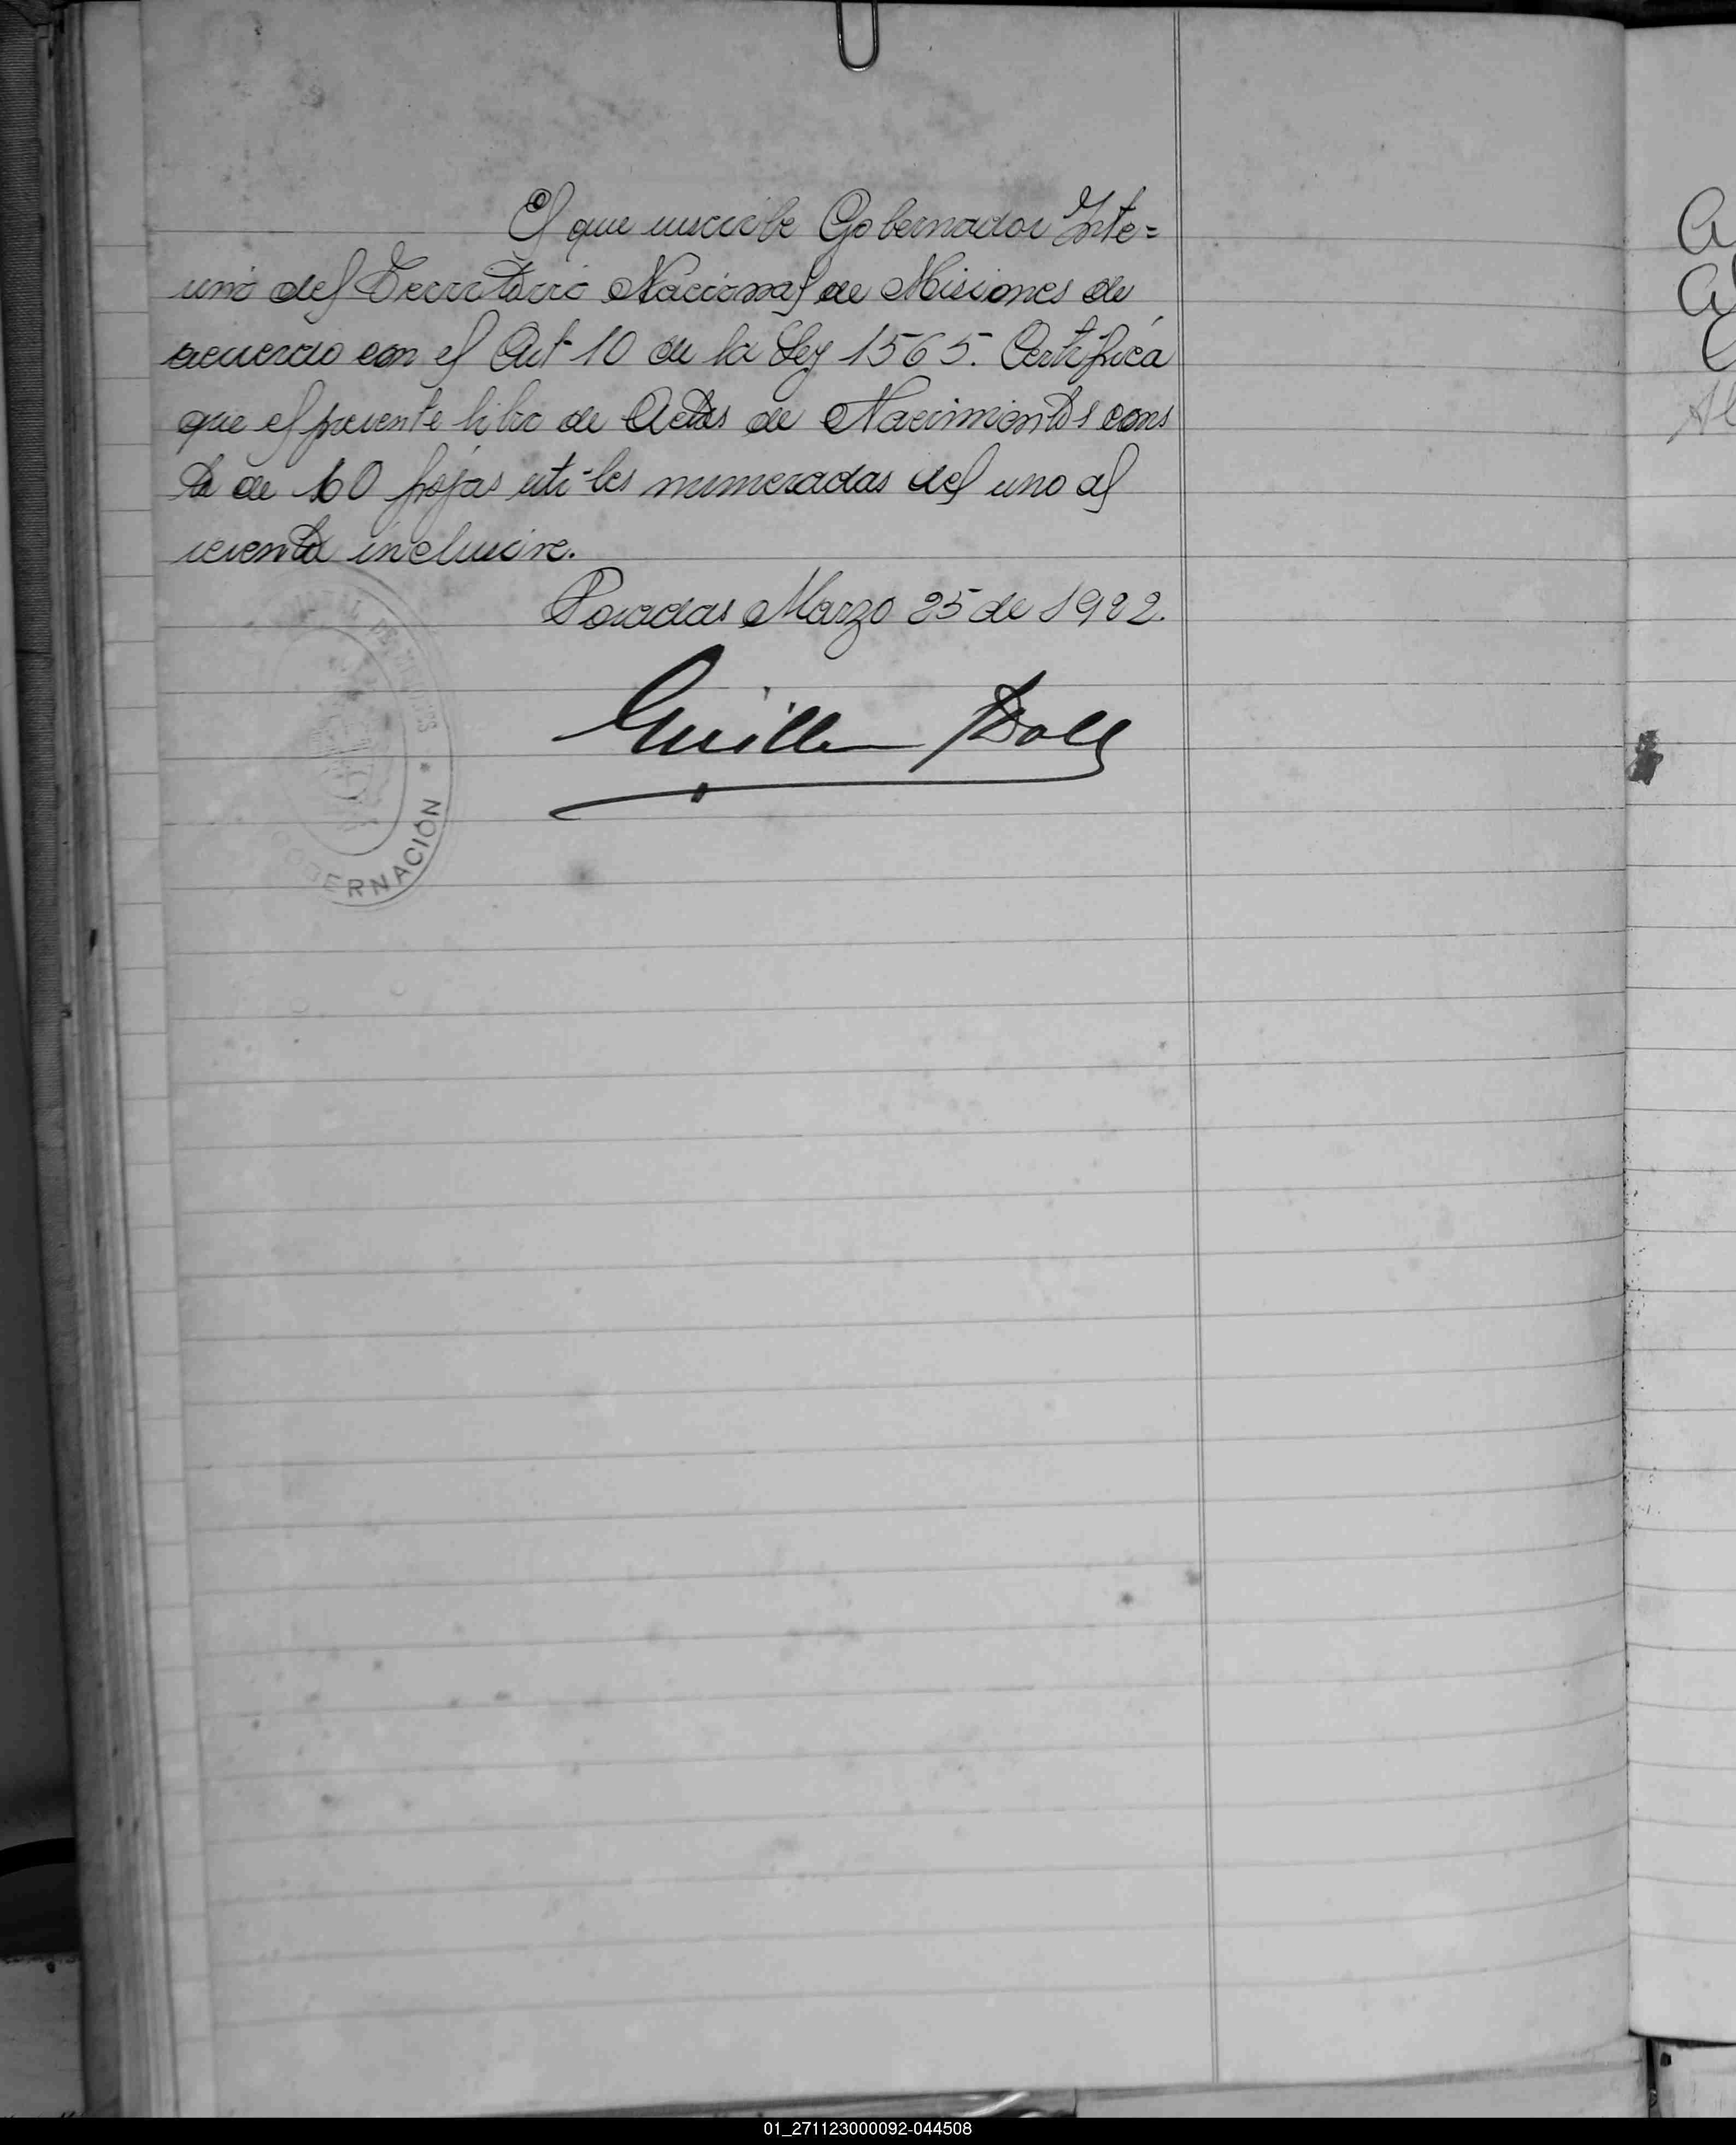 El que suscribe Gobernador Inte=
rino del Territorio Nacional de Misiones de
acuerdo con el Art 10 de la Ley 1565. Certifica
que el presente libro de Actas de Nacimientos cons
ta de 60 fojas utiles numeradas del uno al
sesenta inclusive.
Posadas Marzo 25 de 1922.
Guiller Doll
GOBERNACIÓN
01_271123000092-044508